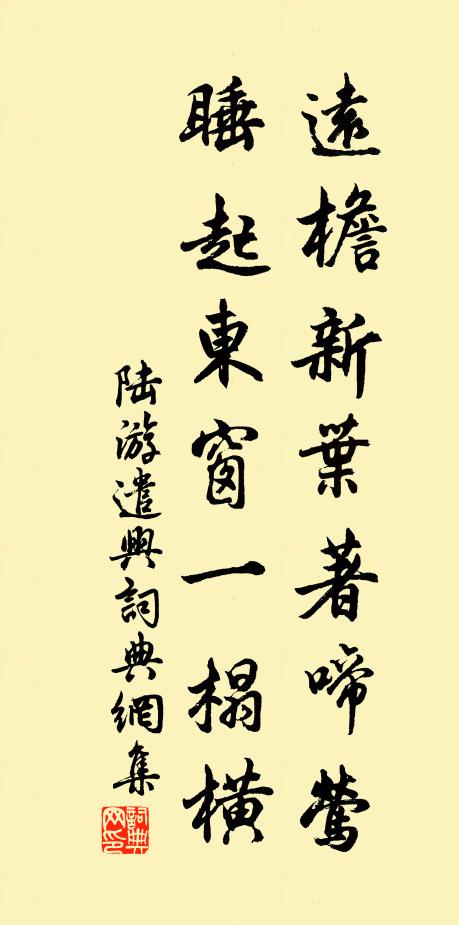 遠檐新葉著啼鶯
睡起東窗一榻橫
陸游遣興詞典網集
詞典網印